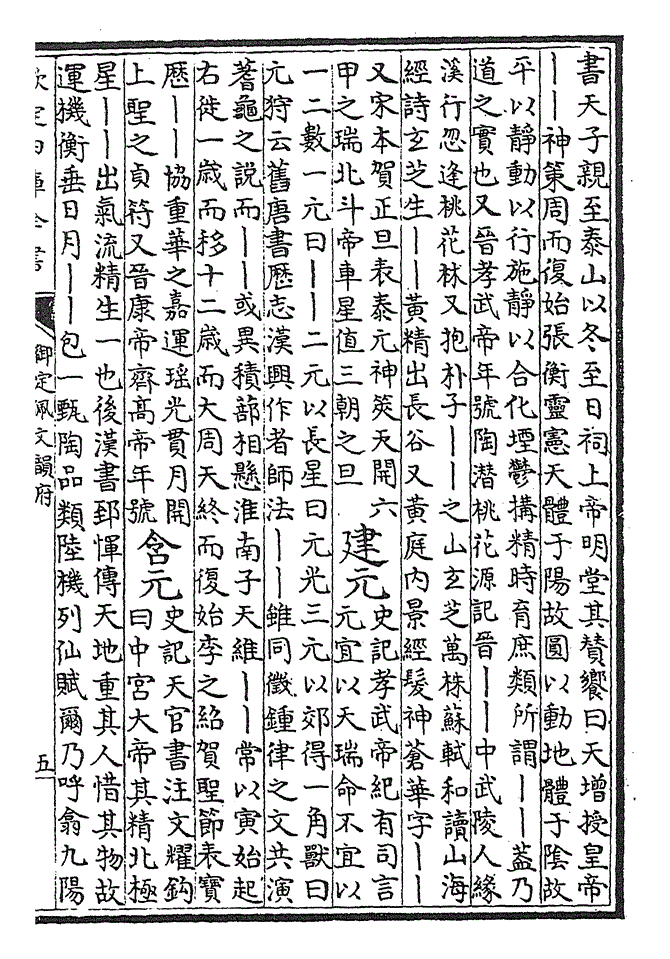 書天子親至泰山以冬至日祠上帝明堂其贊饗曰天增授皇帝
丨丨神策周而復始張衡靈憲天體于陽故圓以動地體于陰故
平以靜動以行施靜以合化堙鬱搆精時育庶類所謂丨丨葢乃
道之實也又晉孝武帝年號陶潜桃花源記晉丨丨中武陵人緣
溪行忽逢桃花林又抱朴子丨丨之山玄芝萬株蘇軾和讀山海
經詩玄芝生丨丨黄精出長谷又黄庭内景經髮神蒼華字丨丨
又宋本賀正旦表泰元神筴天開六
甲之瑞北斗帝車星值三朝之旦
建元
史記孝武帝紀有司言
元宜以天瑞命不宜以
一二數一元曰丨丨二元以長星曰元光三元以郊得一角獸曰
元狩云舊唐書厯志漢興作者師法丨丨雖同徵鍾律之文共演
蓍龜之説而丨丨或異積蔀相懸淮南子天維丨丨常以寅始起
右徙一歲而移十二歲而大周天終而復始李之紹賀聖節表寳
厯丨丨協重華之嘉運瑶光貫月開
上聖之貞符又晉康帝齊髙帝年號
含元
史記天官書注文耀鈎
曰中宮大帝其精北極
星丨丨出氣流精生一也後漢書郅惲傳天地重其人惜其物故
運機衡垂日月丨丨包一甄陶品類陸機列仙賦爾乃呼翕九陽
欽定四庫全書
御定佩文韻府
五